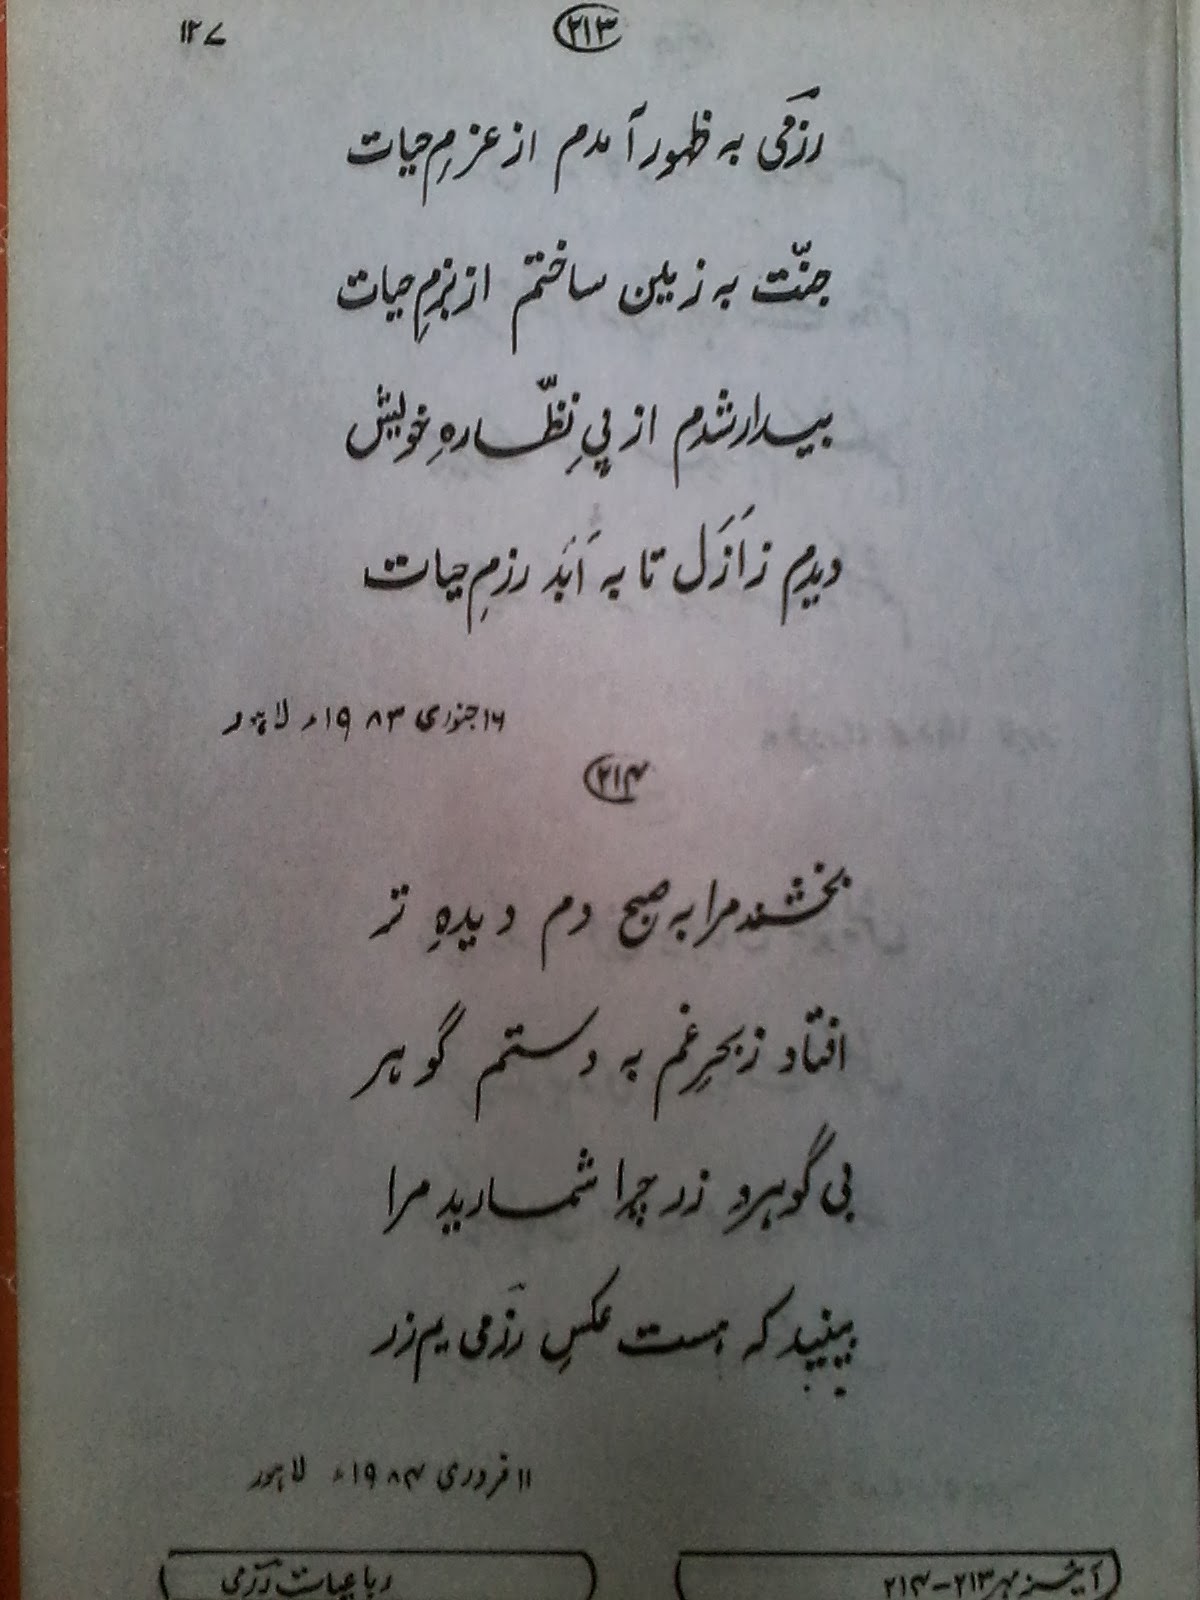 ۱۲۷
۲۱۳
رزمی به ظهور آمدم از عزمِ حیات
جنّت به زمین ساختم از بزمِ حیات
بیدار شدم از پیِ نظّارهِ خویش
دیدم ز اَزَل تا به اَبَد رزمِ حیات
۱۶ جنوری ۱۹۸۳ء لاہور
۲۱۴
بخشند مرا به صبح دم دیدهِ تر
افتاد ز بحرِ غم به دستم گوهر
بی گوهر و زر چرا شمارید مرا
ببینید که هست عکسِ رزمی یم زر
۱۱ فروری ۱۹۸۴ء لاہور
آئینہ مہر ۲۱۳-۲۱۴
رباعیات رزمی